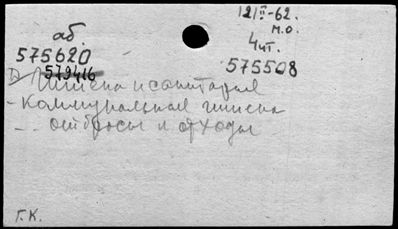 аб
575620
573416
121 II-62.
М.О.
4 чт.
575508
1) Гигиена и санитария
- Коммунальная гигиена
- .. отбросы и отходы
Г.К.